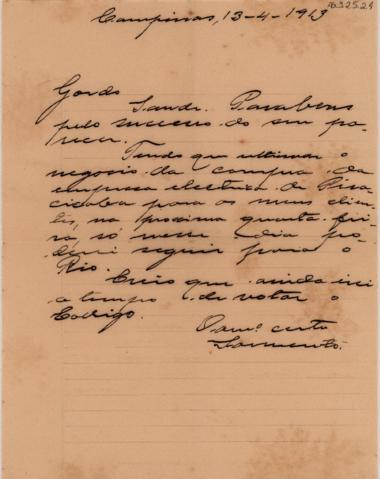 1632524
Campinas, 13-4-1913
Gordo
Saude. Parabens
pelo successo do seu pa-
recer.
Tendo que ultimar o
negocio da compra da
empresa electrica de Pira
cicaba para os meus clien
tes, na proxima quarta-fei
ra, só nesse dia po-
derei seguir para o
Rio.
Creio que ainda irei
a tempo de votar o
Codigo.
O am.º certo
Sarmento.